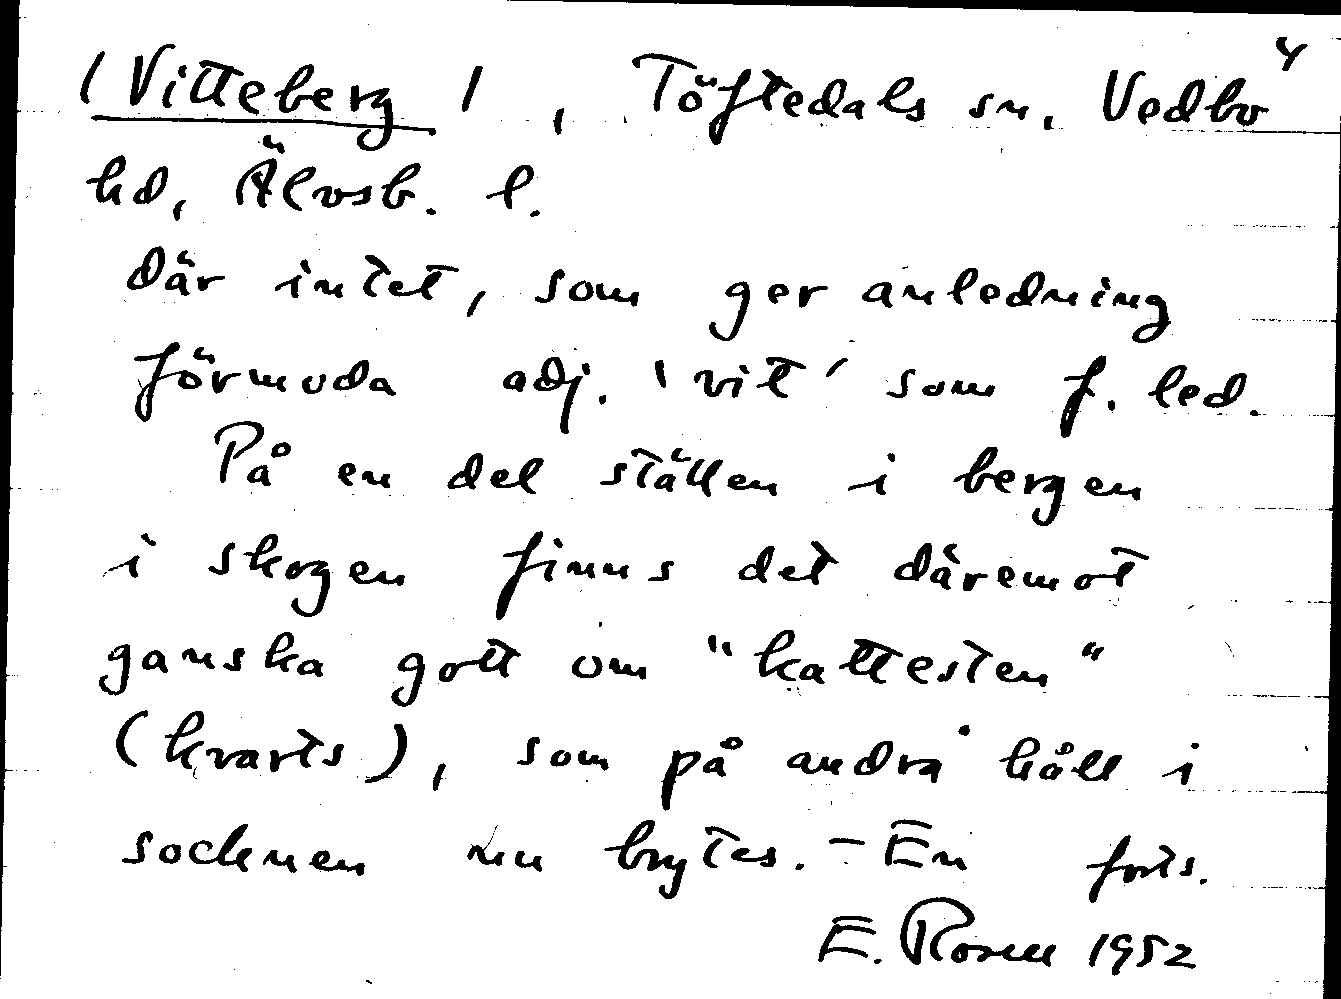 4
(Vitteberg), Töftedals sn, Vedbo
hd, Älvsb. l.
där intet, som ger anledning
förmoda adj. 'vit' som f. led.
På en del ställen i bergen
i skogen finns det däremot
ganska gott om "kattesten"
(kvarts), som på andra håll i
socknen nu brytes. – En forts.
E. Rosell 1952